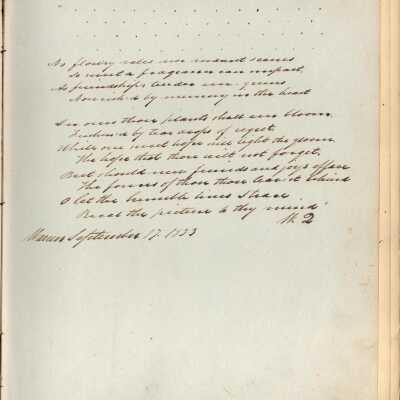 No flowery vales nor
So sweet a fragrance can impart,
As friendship's tender
Nourished by memory in the heart
In ours those plants shall ever bloom,
by tear drops of regret,
While one sweet hope will light the gloom
The hope that thou wilt not forget,
But should new friends and joys often
The forms of those thou leavest behind
O let the humble lines I trace
the picture to thy mind
September 17. 1833